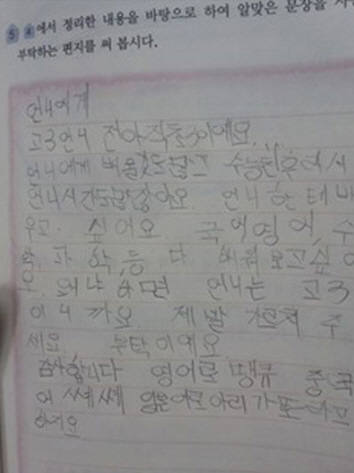 5 4에서 정리한 내용을 바탕으로 하여 알맞은 문장을 사
부탁하는 편지를 써 봅시다.
언니에게
고3언니 전아직초3이에요.
언니에게 배울것도많고 수능친후라서
언니시간도많잖아요 언니한테배
우고 싶어요 국어영어, 수
학, 과학, 등 다 배워보고싶어
요 왜냐하면 언니는 고3
이니까요 제발 가르쳐 주
세요 부탁이에요
감사합니다 영어로 땡큐 중국
어 쎄쎄 일본어로아리가또라고
하지요